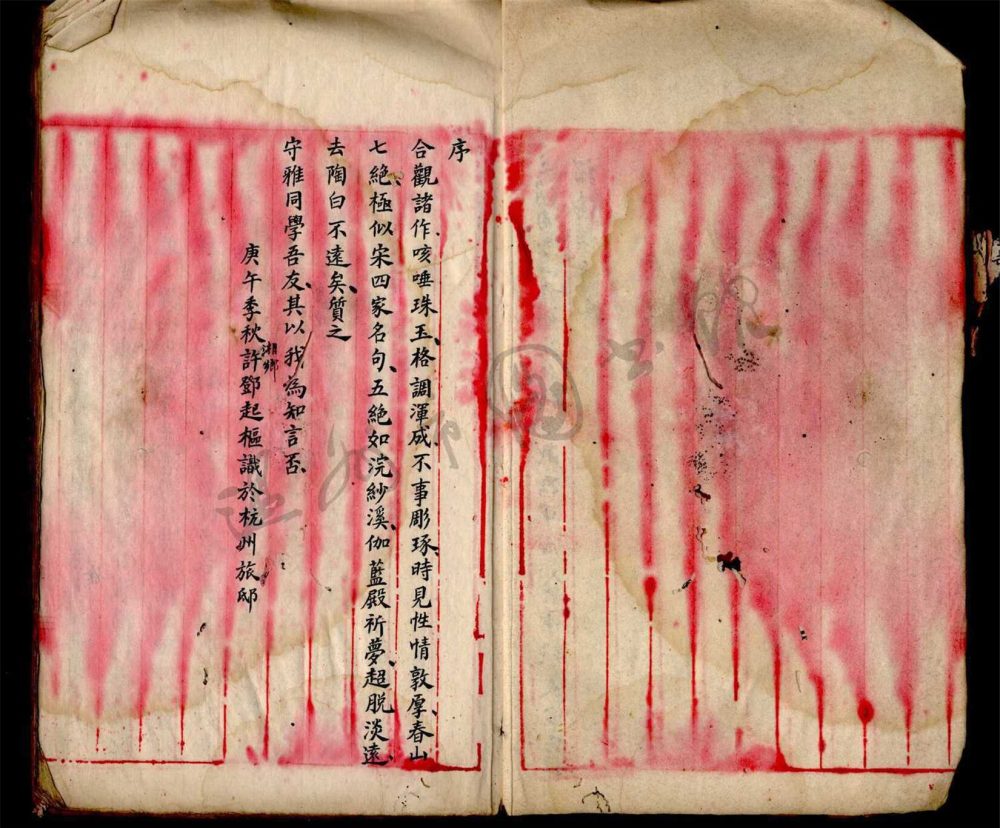 序
合觀諸作、咳唾珠玉、格調渾成、不事彫琢、時見性情敦厚、春山
七絕、極似宋四家名句、五絕如浣紗溪、伽藍殿祈夢、超脫淡遠、
去陶白不遠矣、質之
守雅同學吾友、其以我為知言否、
庚午季秋湘鄉許鄧起樞識於杭州旅邸